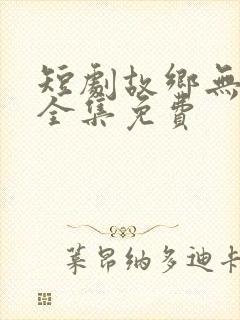 短劇故鄉無
全集免費
萊昂纳多迪卡